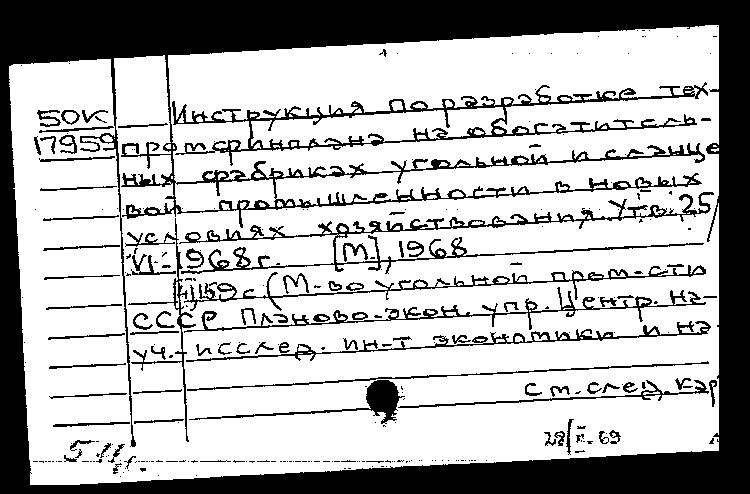 50К Инструкция по разработке тех-
17959 промфинплана на обогатитель-
ных фабриках угольной и сланце
вой промышленности в новых
условиях хозяйствования. Утв. 25/
VI-1968 г. [М], 1968
159 с (М-во угольной пром-сти
СССР. Планово-экон. упр. Центр. на-
уч.-исслед. ин-т экономики и на-
см. след. кар
28/II-69